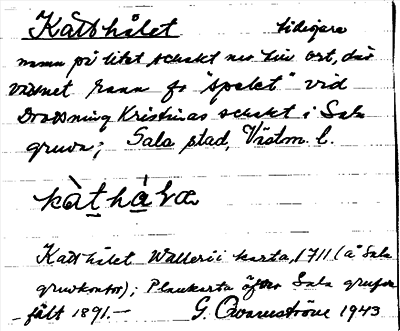 Katthålet tidigare
namn på litet schakt ner till ort, där
vattnet rann fr "spelet" vid
Drottning Kristinas schakt i Sala
gruva; Sala stad, Västm. l.
kàthà̱lə
Katthålet Wallerii karta, 1711 (å Sala
gruvkontor); Plankarta öfver Sala grufve-
fält 1891.— G. Qvarnström 1943